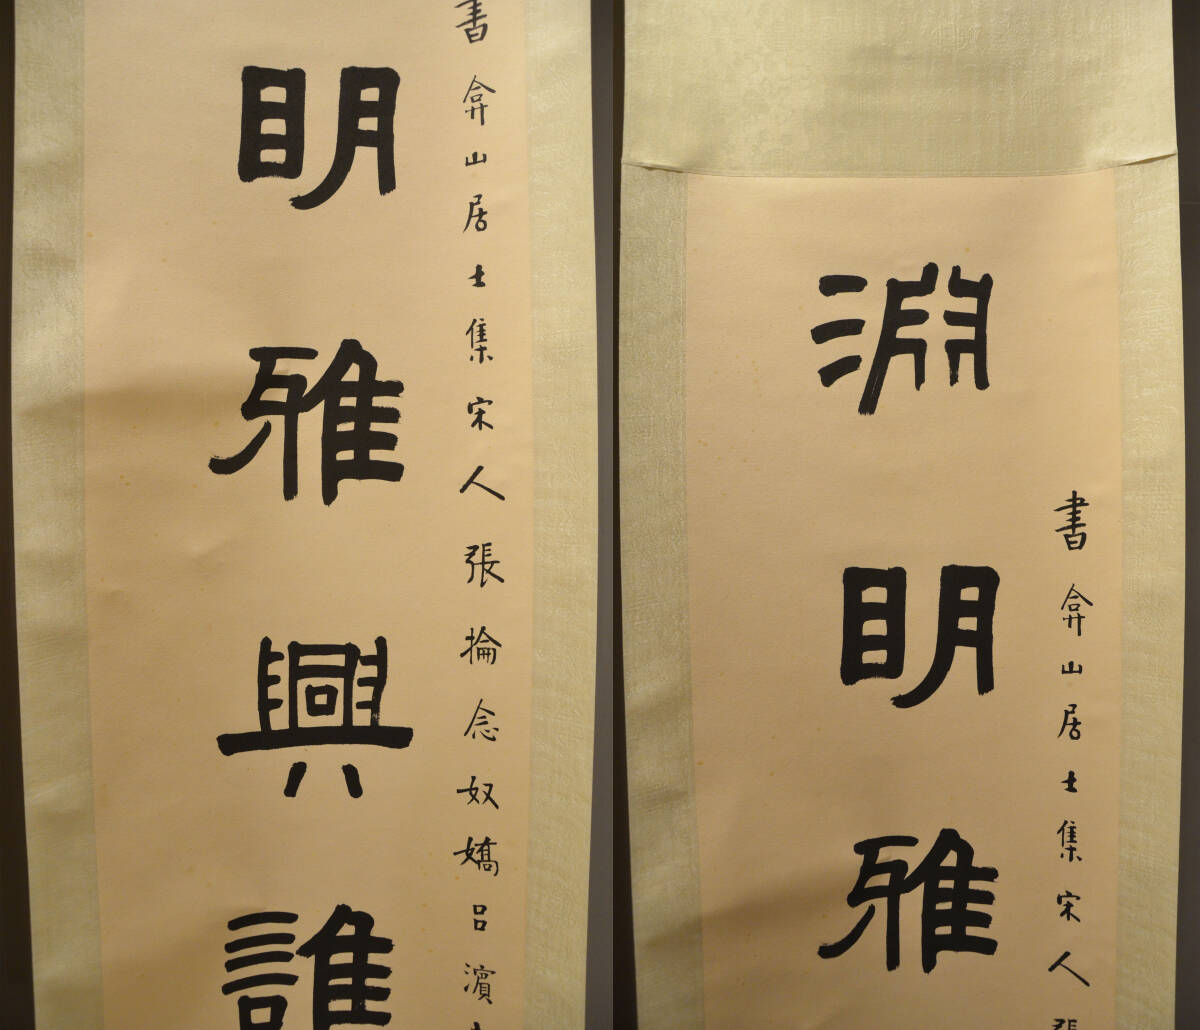 書弇山居士集宋人張掄念奴嬌呂濱
明雅興誰
書弇山居士集宋人張
淵明雅